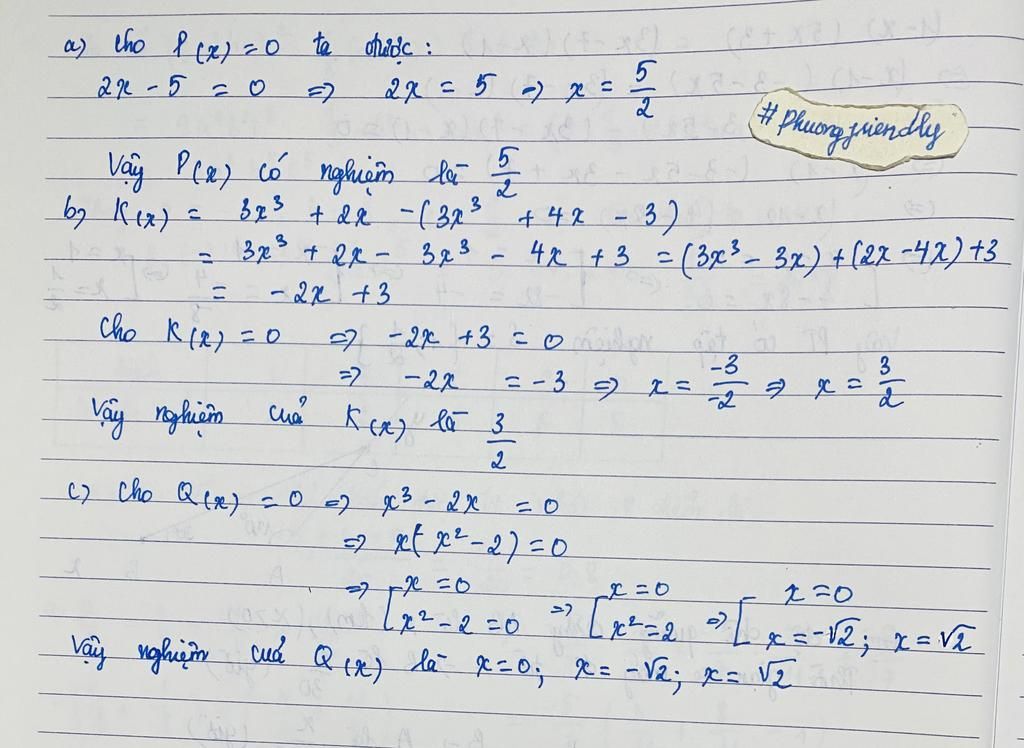 a) Cho P(x) = 0 ta được:
2x - 5 = 0 => 2x = 5 => x = 5/2
#Phuongfriendly
Vậy P(x) có nghiệm là 5/2
b) K(x) = 3x³ + 2x - (3x³ + 4x - 3)
= 3x³ + 2x - 3x³ - 4x + 3 = (3x³ - 3x) + (2x - 4x) + 3
= -2x + 3
Cho K(x) = 0 => -2x + 3 = 0
=> -2x = -3 => x = -3/-2 => x = 3/2
Vậy nghiệm của K(x) là 3/2
c) Cho Q(x) = 0 => x³ - 2x = 0
=> x(x² - 2) = 0
=> [x = 0 => [x = 0 => [x = 0
x² - 2 = 0 x² = 2 x = -√2; x = √2
Vậy nghiệm của Q(x) là x = 0; x = -√2; x = √2